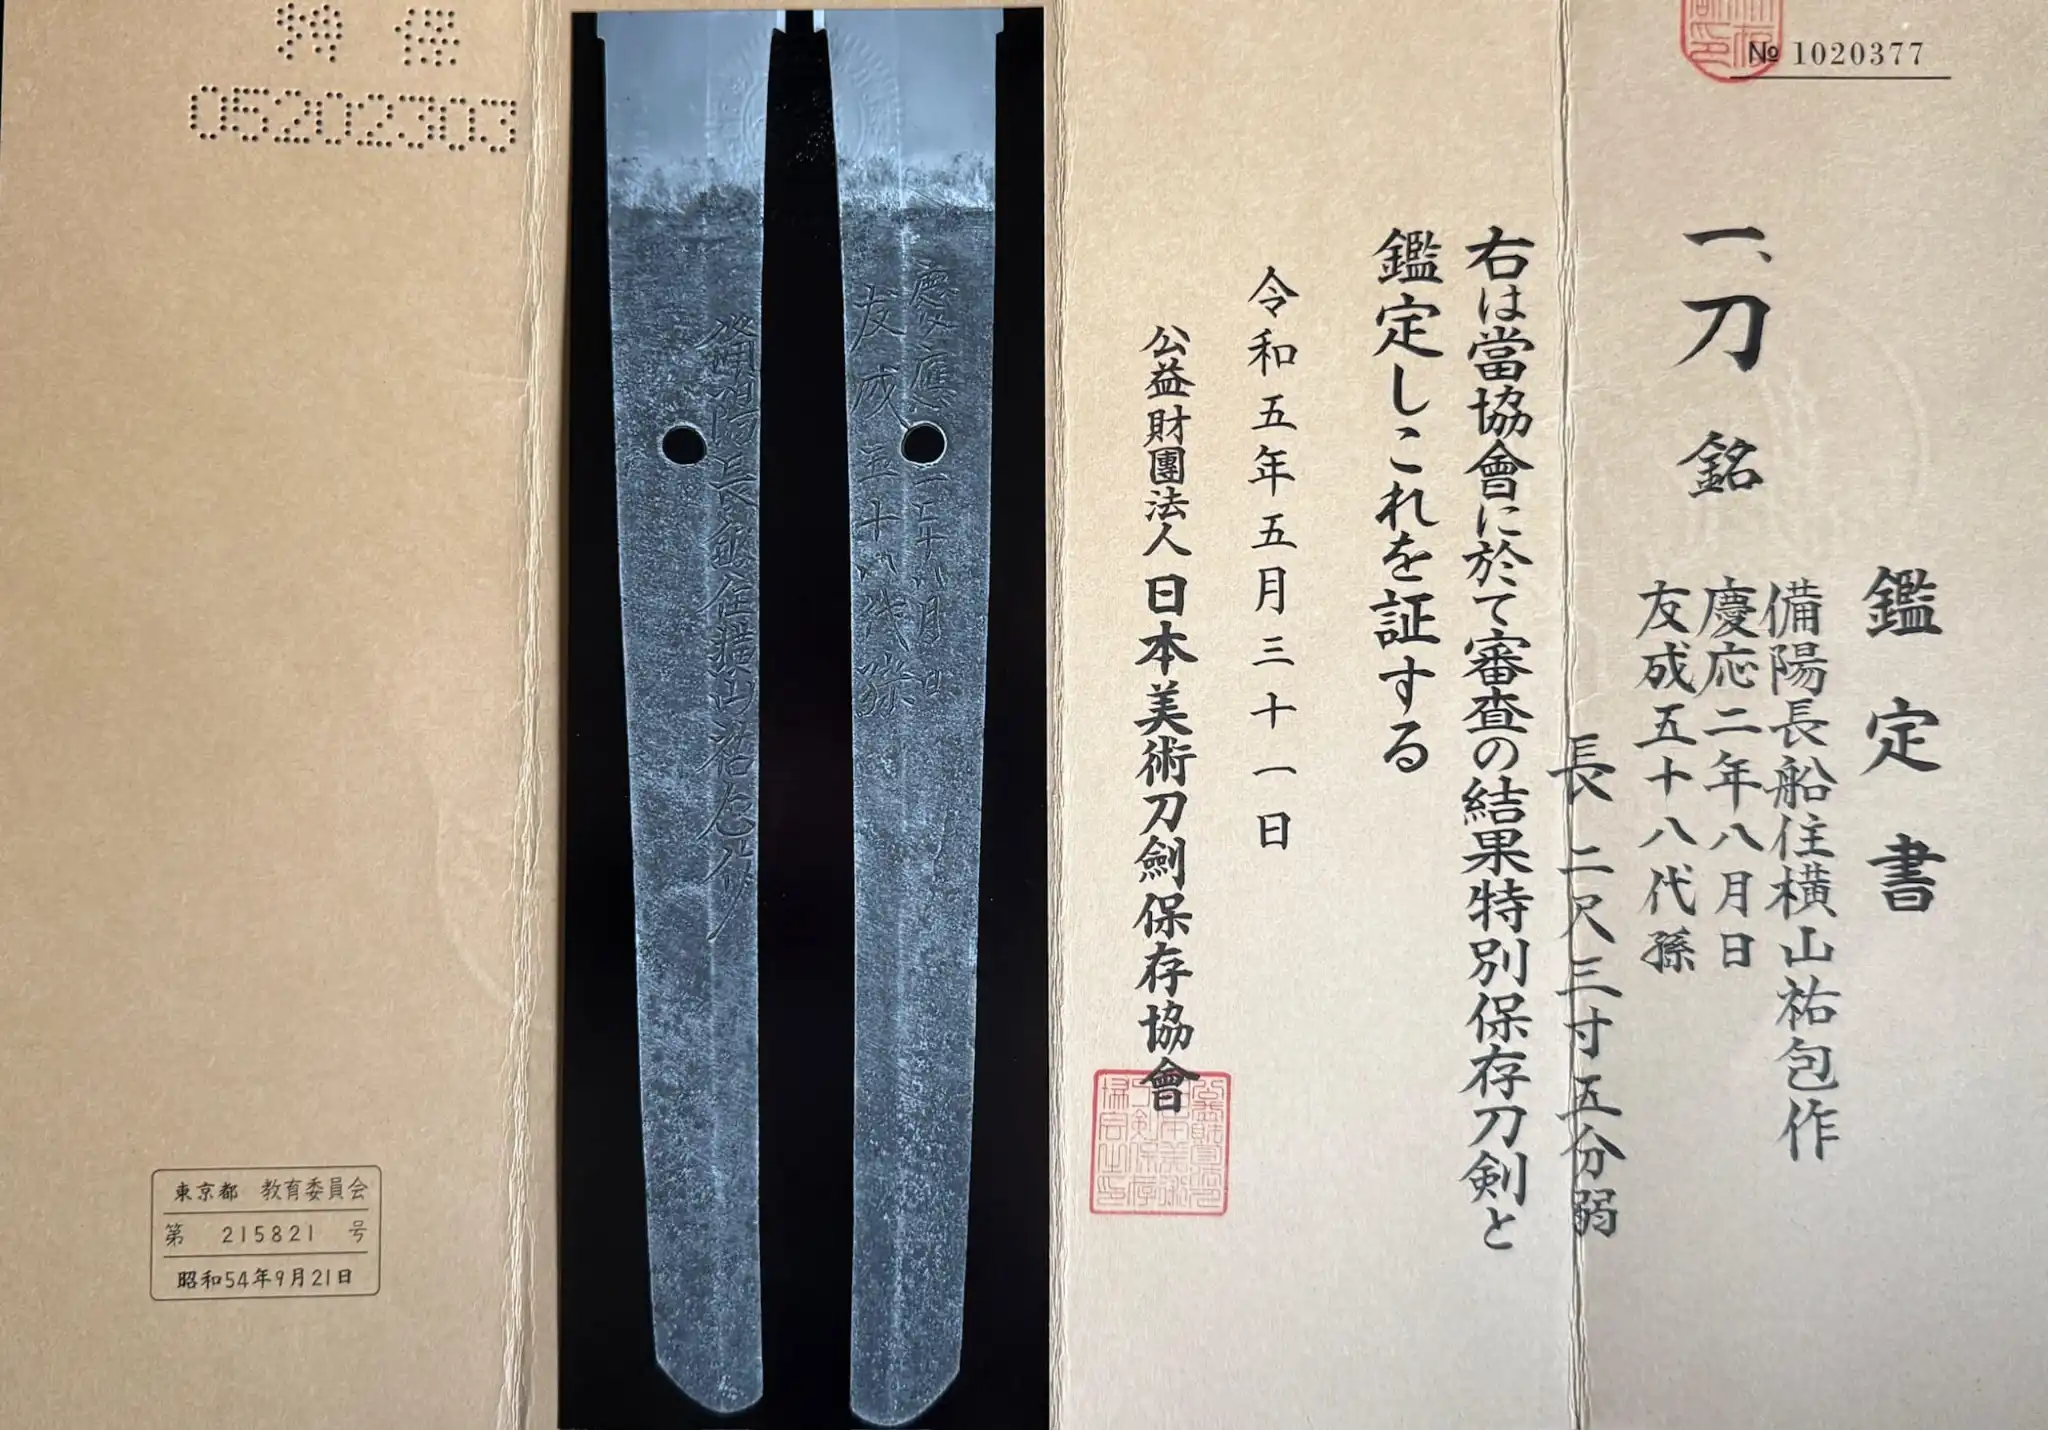 № 1020377
鑑定書
一、刀 銘
備陽長船住横山祐包作
慶応二年八月日
友成五十八代孫
長 二尺三寸五分弱
右は當協會に於て審査の結果特別保存刀剣と
鑑定しこれを証する
令和五年五月三十一日
公益財團法人 日本美術刀劍保存協會
慶應二年八月日
友成五十八代孫
備陽長船住横山祐包作
特保
05202303
東京都 教育委員会
第 215821 号
昭和54年9月21日